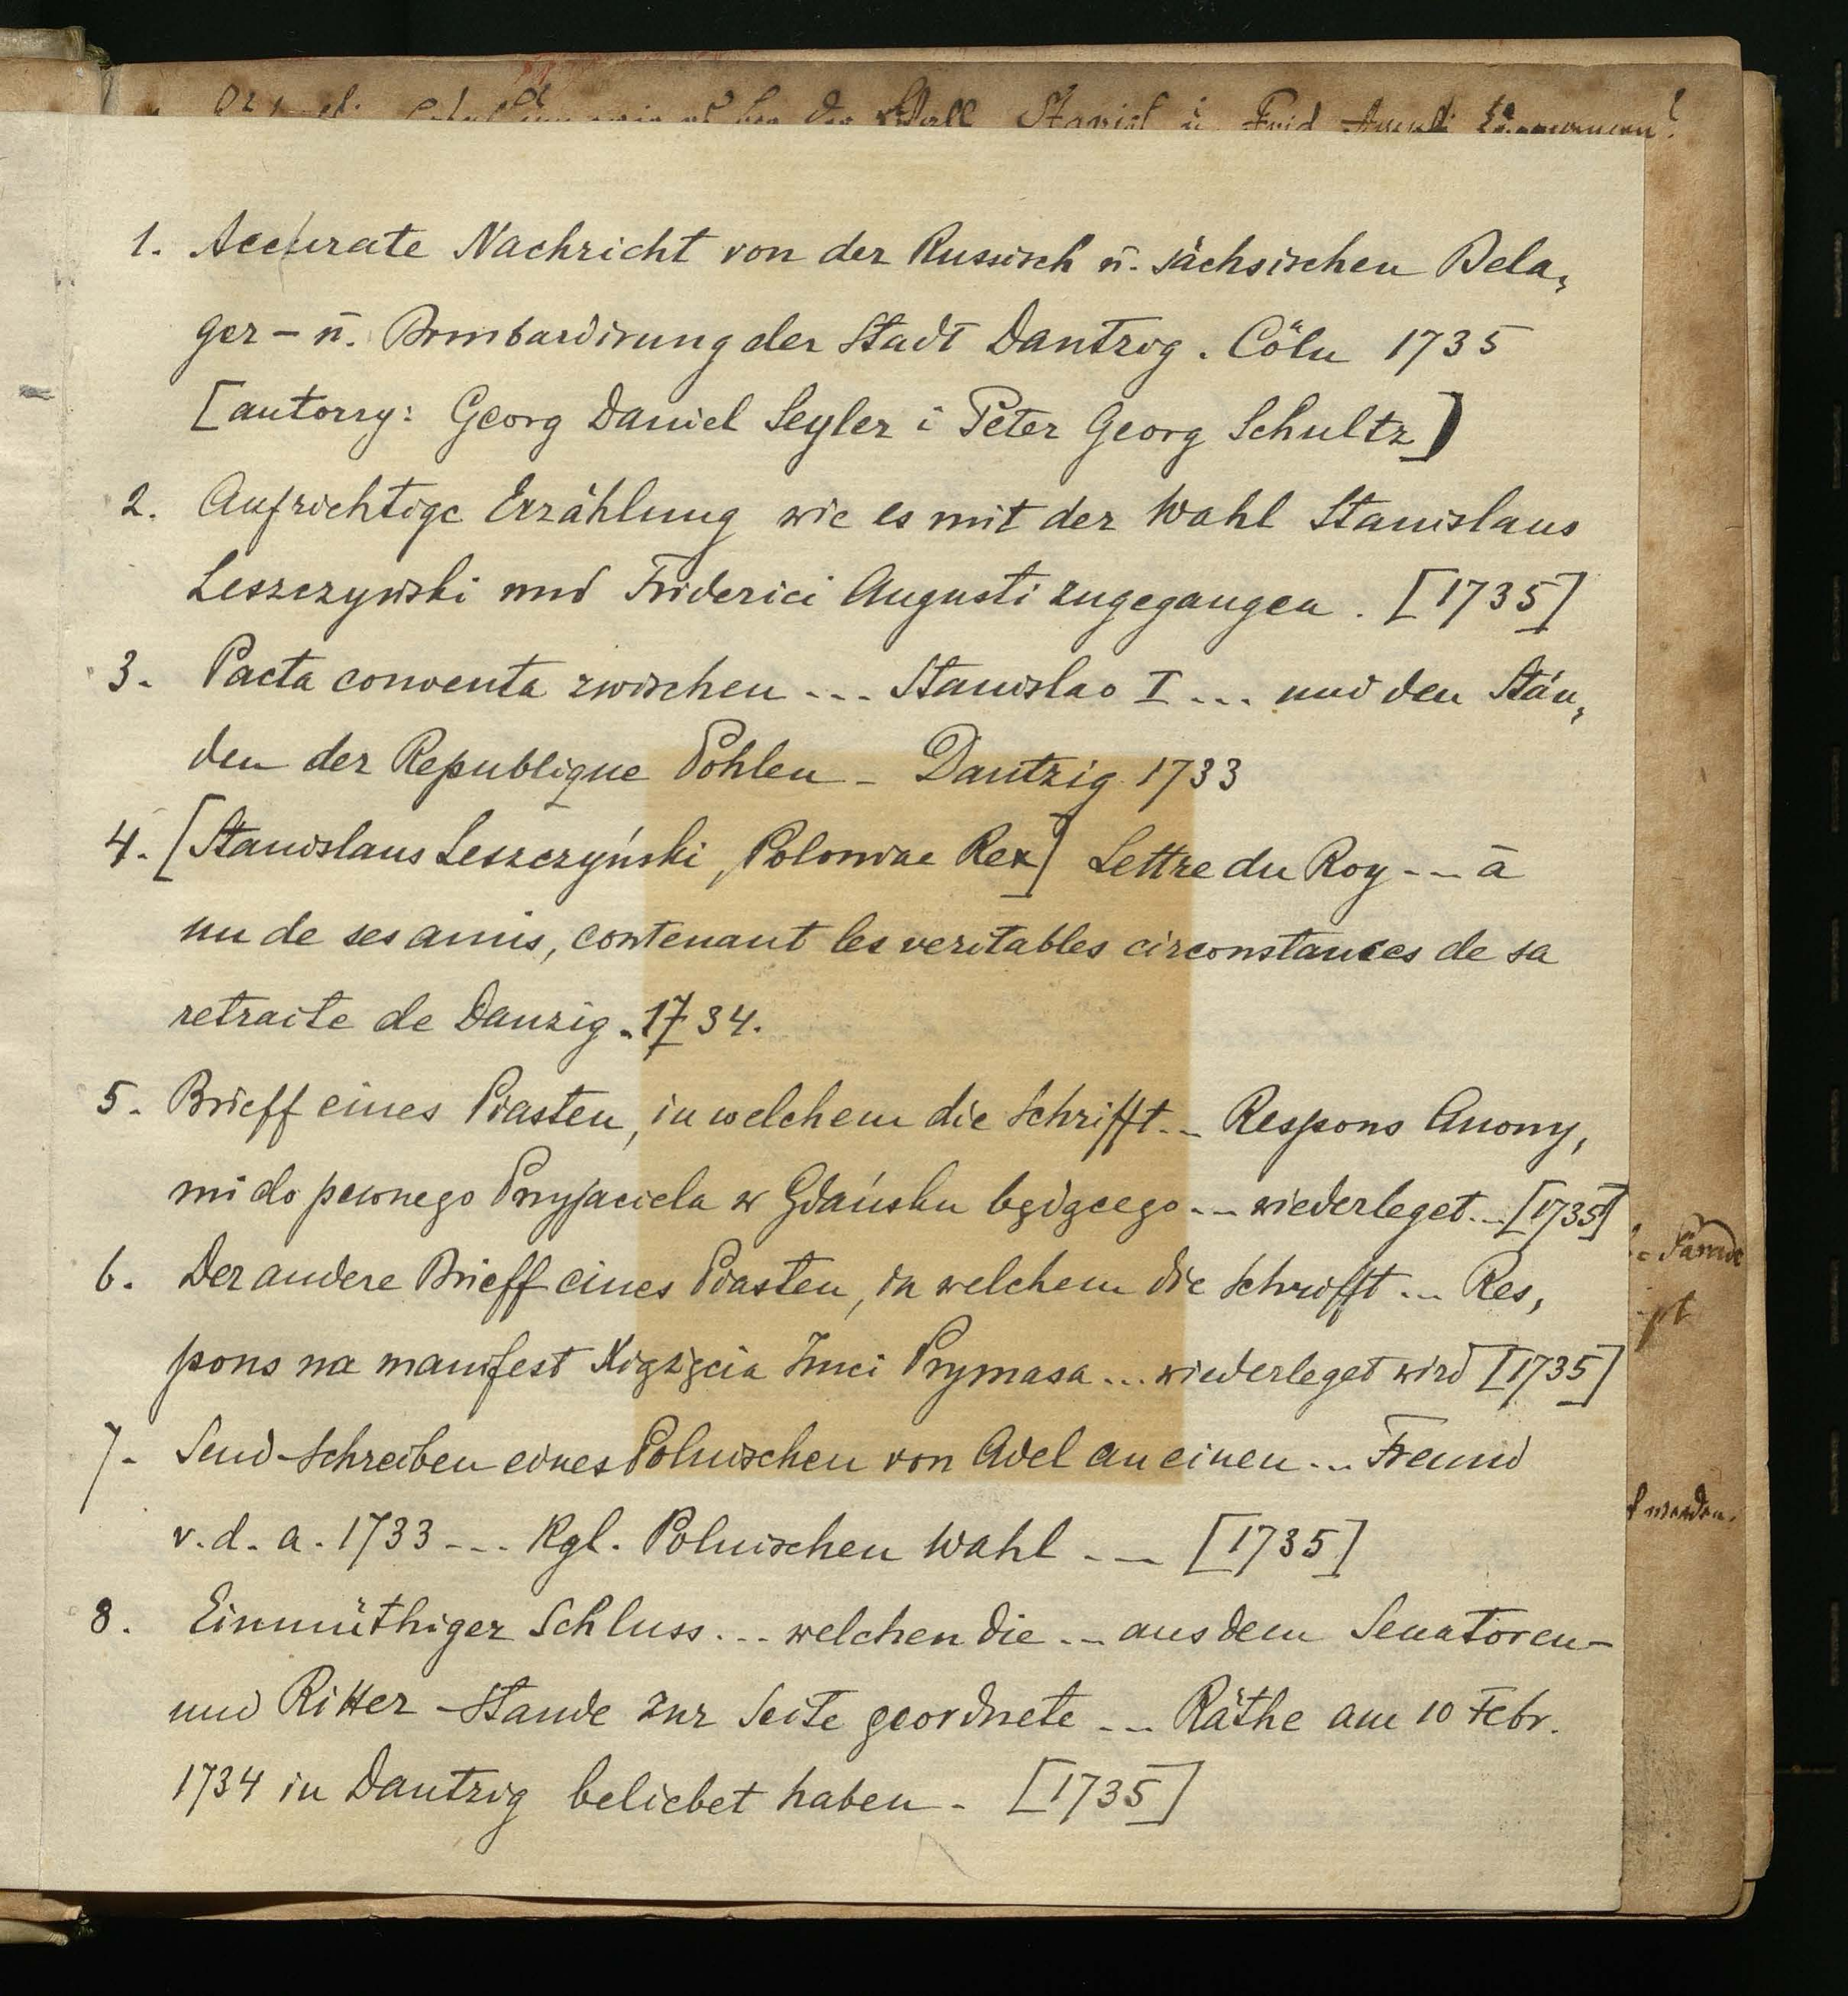 1. Accurate Nachricht von der Russisch ū. sächsischen Bela,
ger - ū. Bombardirung der Stadt Dantzig. Cöln 1735
[autorzy: Georg Daniel Seyler i Peter Georg Schultz]
2. Aufrichtige Erzählung wie es mit der Wahl Stanislaus
Leszczynski und Friderici Augusti zugegangen. [1735]
3. Pacta conventa zwischen ... Stanislao I ... und den Stän,
den der Republique Pohlen - Dantzig 1733
4. [Stanislaus Leszczyński, Poloniae Rex] Lettre du Roy -- à
un de ses amis, contenant les veritables circonstances de sa
retraite de Danzig. 1734.
5. Brieff eines Piasten, in welchem die Schrifft -- Respons Anony,
mi do pewnego Przyjaciela w Gdańsku będącego -- wiederleget -- [1735]
6. Der andere Brieff eines Piasten, in welchem die Schrifft ... Res,
pons na manifest Xiążęcia Imci Prymasa ... wiederleget wird [1735]
7. Send-Schreiben eines Polnischen von Adel an einen ... Freund
v. d. a. 1733 --- Kgl. Polnischen Wahl -- [1735]
8. Einmüthiger Schluss ... welchen die -- aus dem Senatoren-
und Ritter-Stande zur Seite geordnete -- Räthe am 10 Febr.
1734 in Dantzig beliebet haben - [1735]